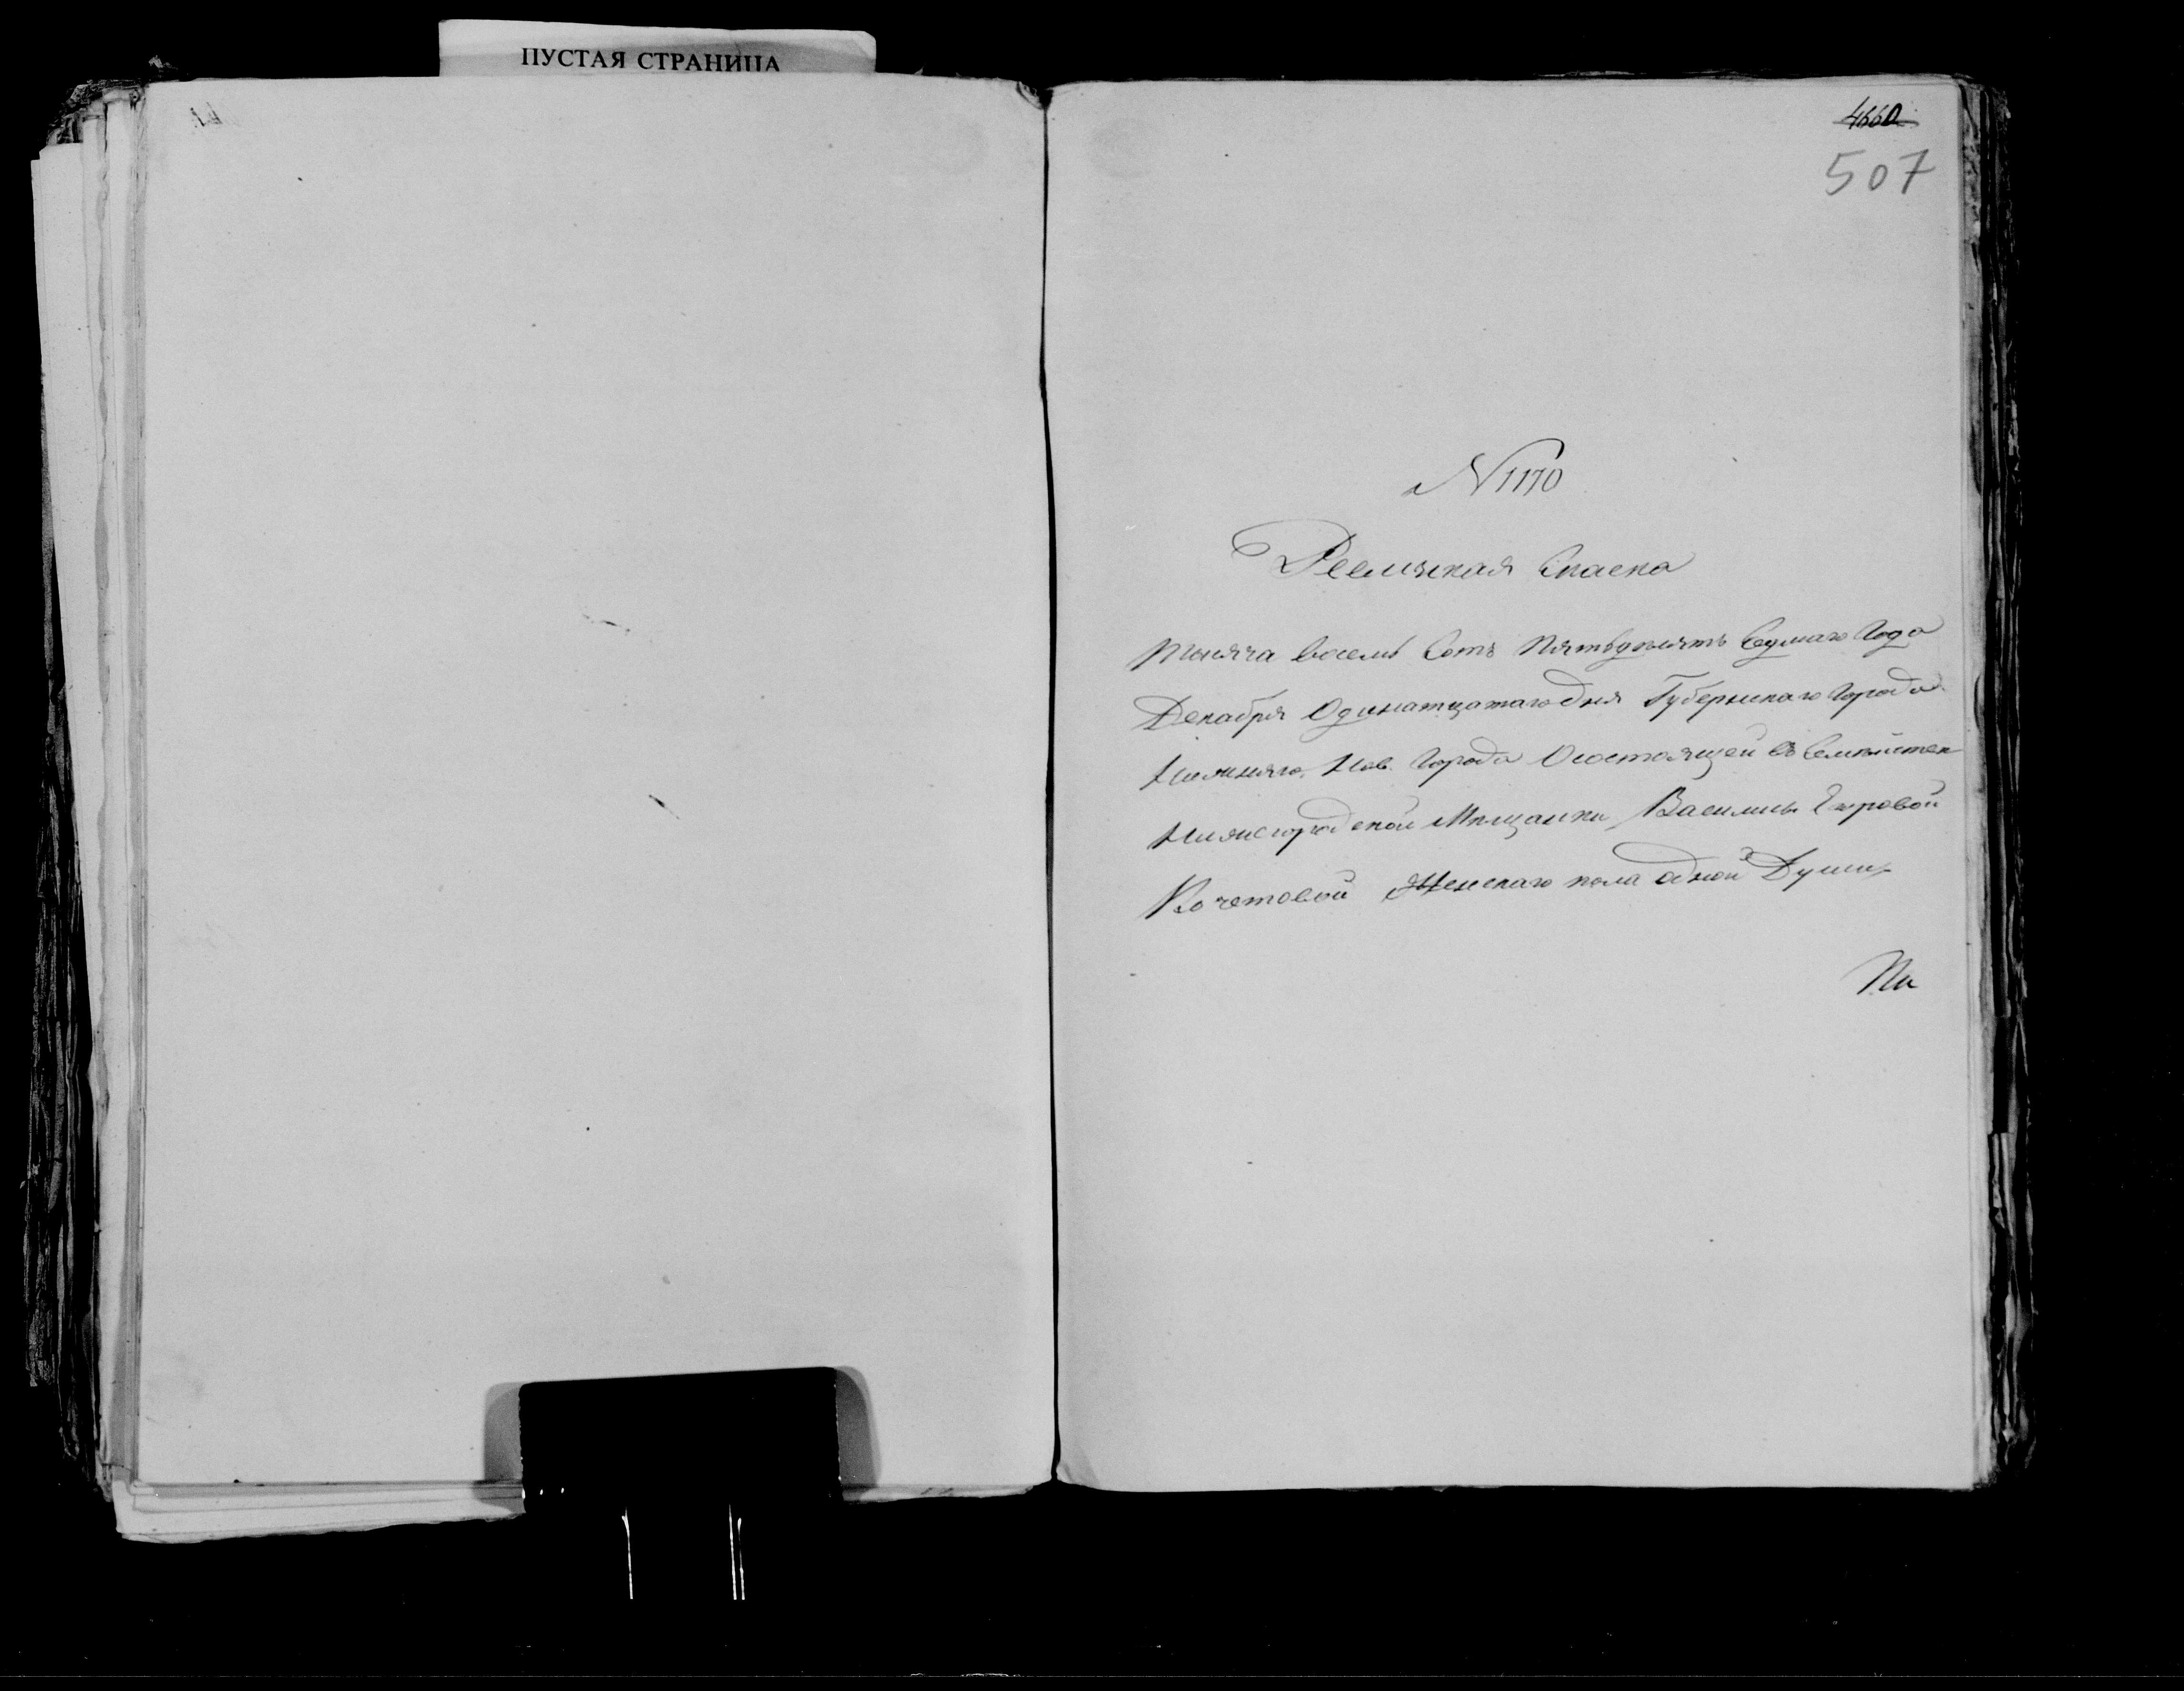 ПУСТАЯ СТРАНИЦА
4660
507
N 1170
Ревизская Сказка
тысяча восемь сотъ пятьдесятъ седмаго года
Декабря Одинатцатаго дня Губернскаго Города
Нижняго Нов. Города О состоящей въ
Нижегородской Мещанки Василисы Егоровой
Кочетовой Женскаго пола одной Души